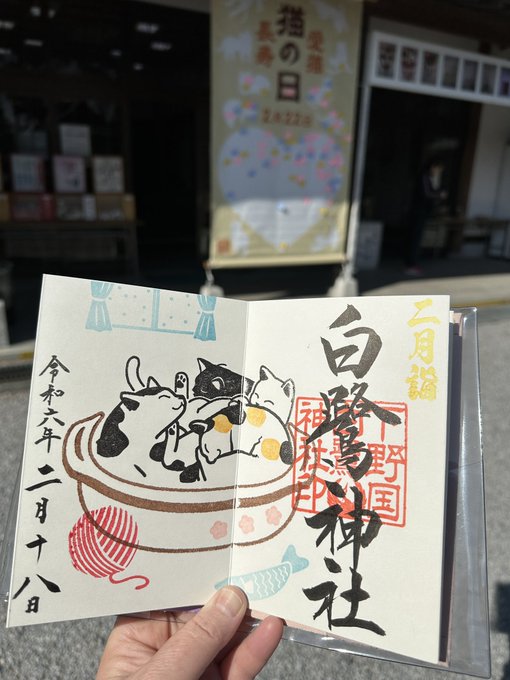 愛猫
猫の日
長寿
2月22日
二月詣
白鷺神社
下野国
神社印
令和六年二月十八日